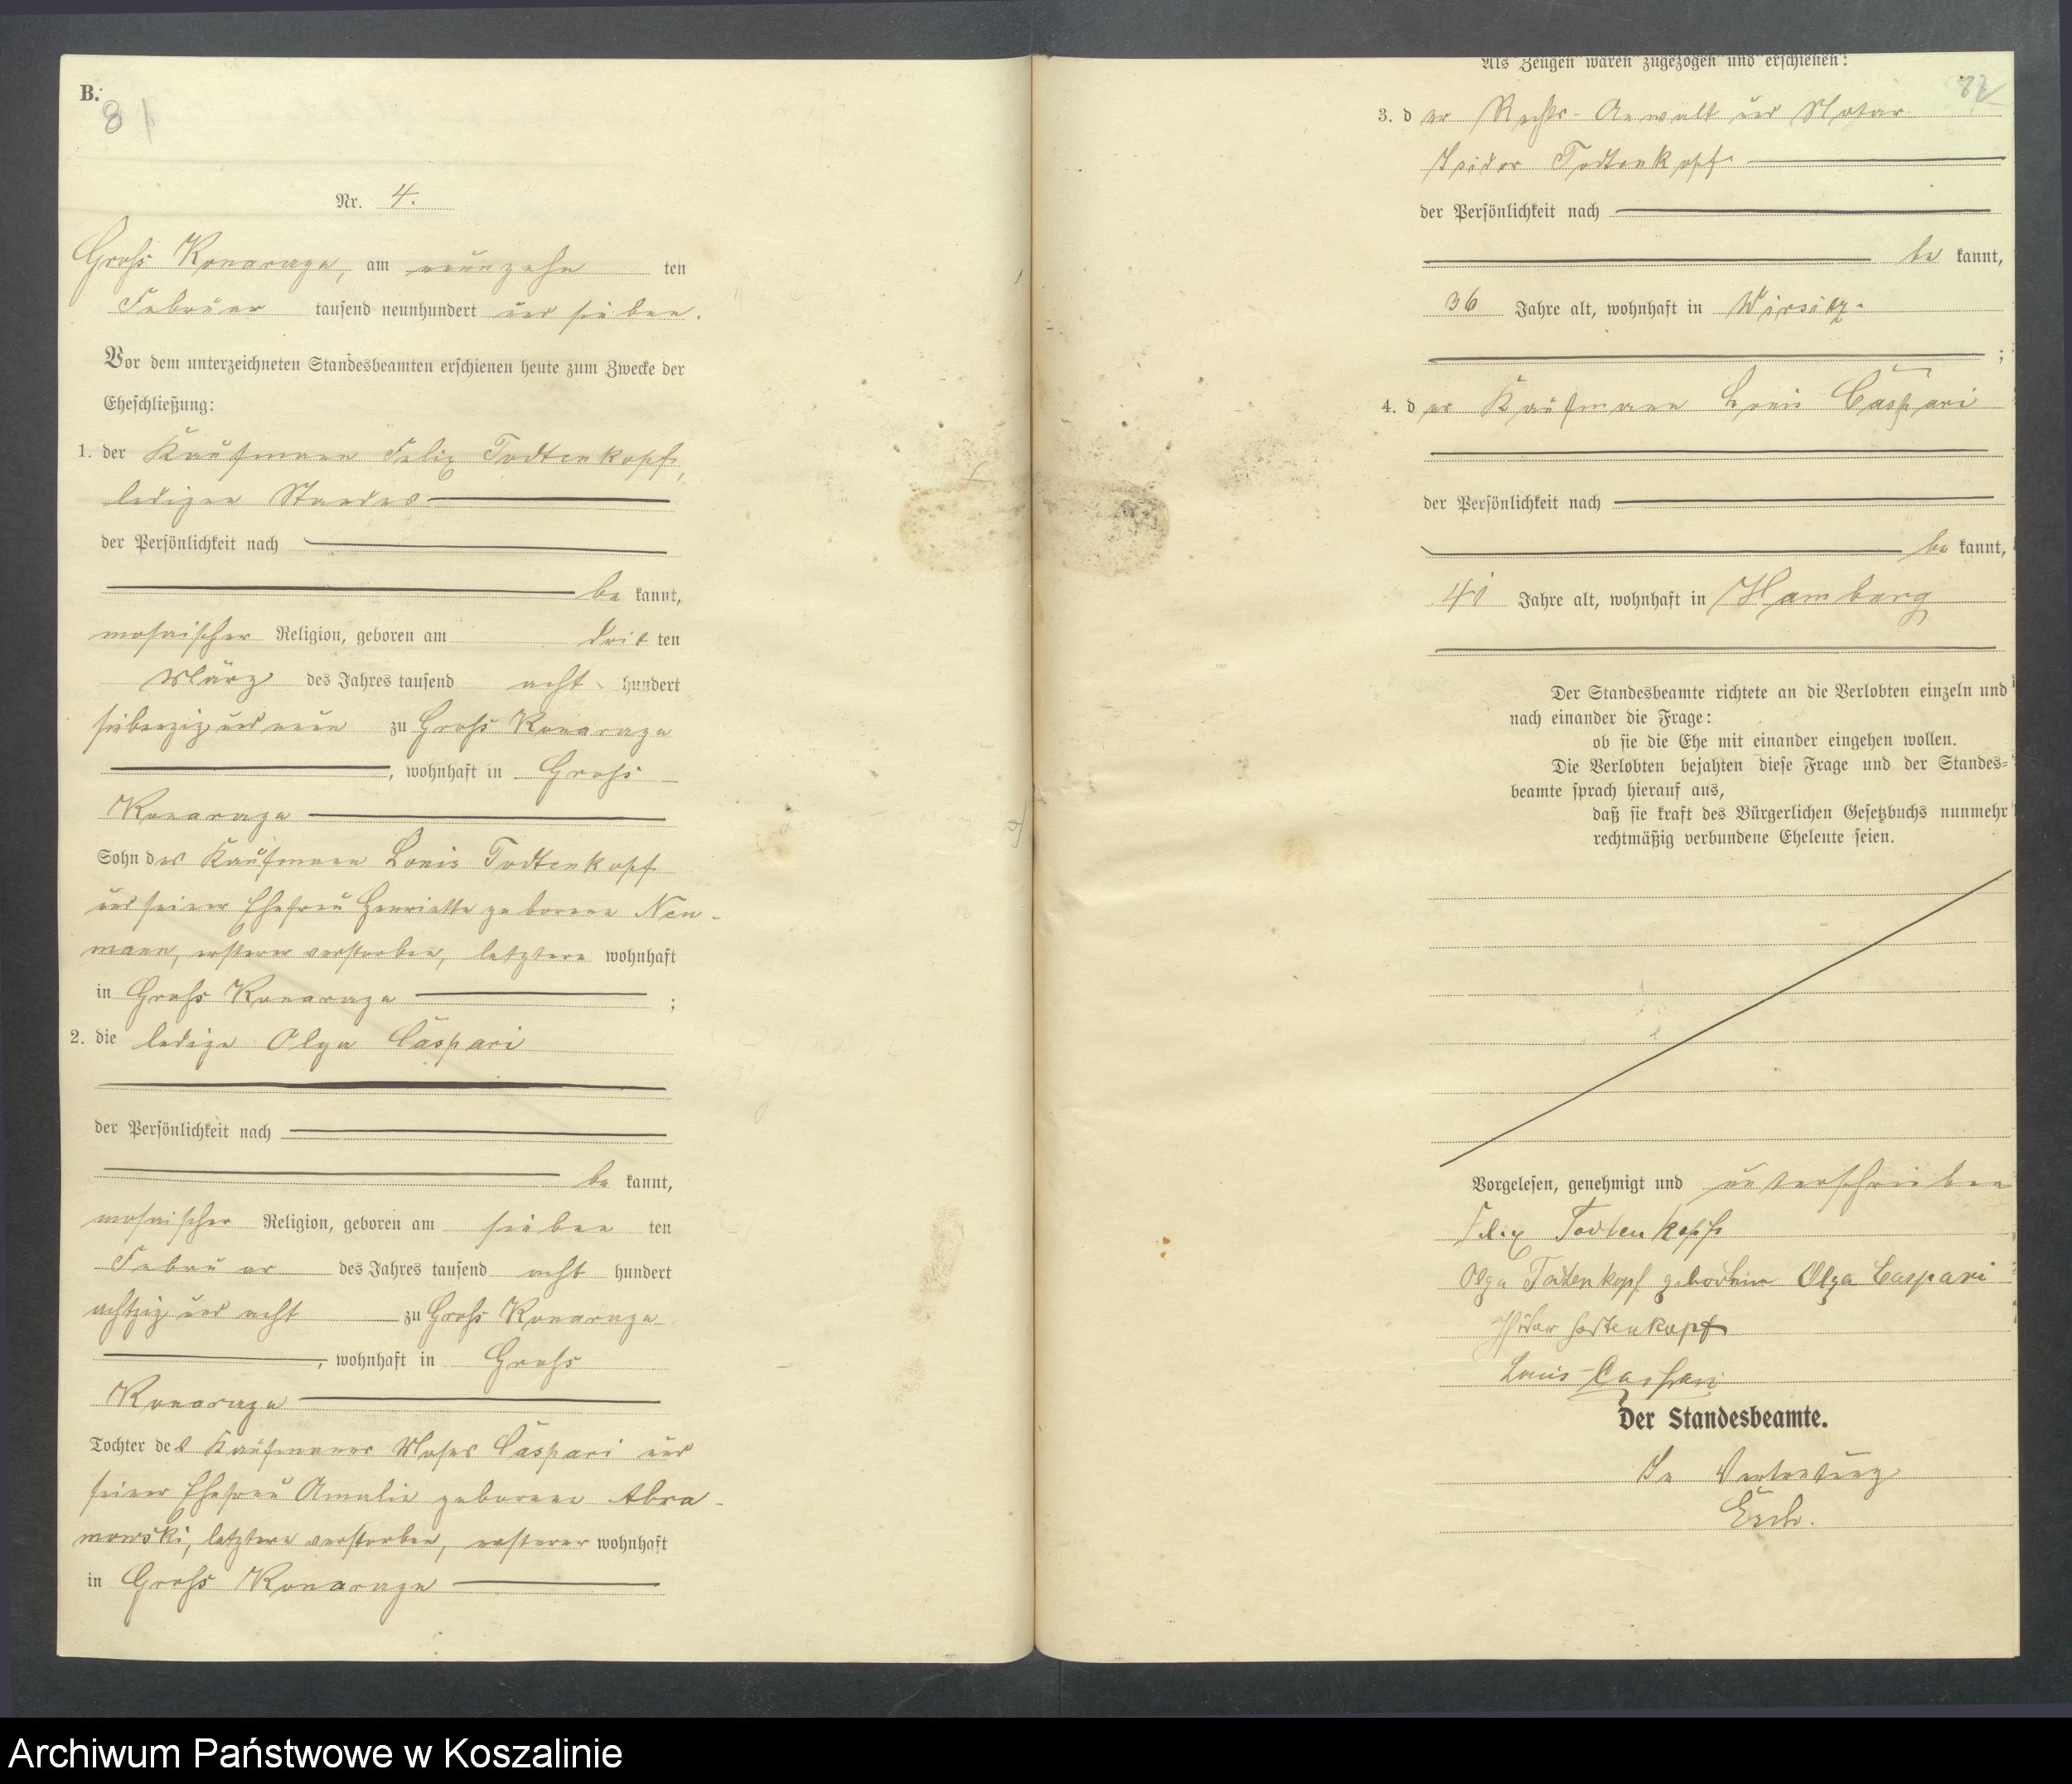 B.
81
Nr. 4.
Gross Konarzyn, am neunzehn ten
Februar tausend neunhundert und sieben.
Vor dem unterzeichneten Standesbeamten erschienen heute zum Zwecke der
Eheschließung:
1. der Kaufmann Felix Todtenkopf,
ledigen Standes
der Persönlichkeit nach
be kannt,
mosaischer Religion, geboren am drit ten
März des Jahres tausend acht hundert
siebenzig und neun zu Gross Konarzyn
, wohnhaft in Gross
Konarzyn
Sohn des Kaufmann Louis Todtenkopf
und seiner Ehefrau Henriette geborene Neu-
mann, ersterer verstorben, letztere wohnhaft
in Gross Konarzyn ;
2. die ledige Olga Caspari
der Persönlichkeit nach
be kannt,
mosaischer Religion, geboren am sieben ten
Februar des Jahres tausend acht hundert
achtzig und acht zu Gross Konarzyn
, wohnhaft in Gross
Konarzyn
Tochter des Kaufmanns Moses Caspari und
seiner Ehefrau Amalie geborene Abra-
mowski, letztere verstorben, ersterer wohnhaft
in Gross Konarzyn
Als Zeugen waren zugezogen und erschienen:
82
3. d er Rechts-Anwalt und Notar
Isidor Todtenkopf
der Persönlichkeit nach
be kannt,
36 Jahre alt, wohnhaft in Wirsitz
;
4. d er Kaufmann Louis Caspari
der Persönlichkeit nach
be kannt,
41 Jahre alt, wohnhaft in Hamburg
Der Standesbeamte richtete an die Verlobten einzeln und
nach einander die Frage:
ob sie die Ehe mit einander eingehen wollen.
Die Verlobten bejahten diese Frage und der Standes=
beamte sprach hierauf aus,
daß sie kraft des Bürgerlichen Gesetzbuchs nunmehr
rechtmäßig verbundene Eheleute seien.
Vorgelesen, genehmigt und unterschrieben
Felix Todtenkopf
Olga Todtenkopf geborene Olga Caspari
Isidor Todtenkopf
Louis Caspari
Der Standesbeamte.
In Vertretung
Archiwum Państwowe w Koszalinie